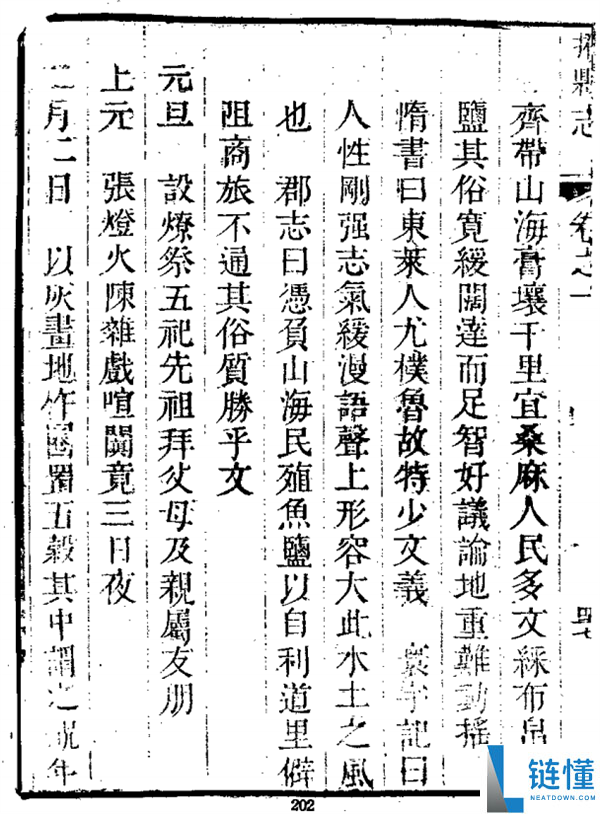 縣志 卷之一
齊帶山海膏壤千里宜桑麻人民多文綵布帛
鹽其俗寬緩闊達而足智好議論地重難動搖
隋書曰東萊人尤樸魯故特少文義 寰宇記曰
人性剛强志氣緩漫語聲上形容大此水土之風
也 郡志曰憑負山海民殖魚鹽以自利道里僻
阻商旅不通其俗質勝乎文
元旦 設燎祭五祀先祖拜父母及親屬友朋
上元 張燈火陳雜戲喧闐竟三日夜
二月二日 以灰畫地作囷置五穀其中謂之
202
链懂
NEATDOWN.COM